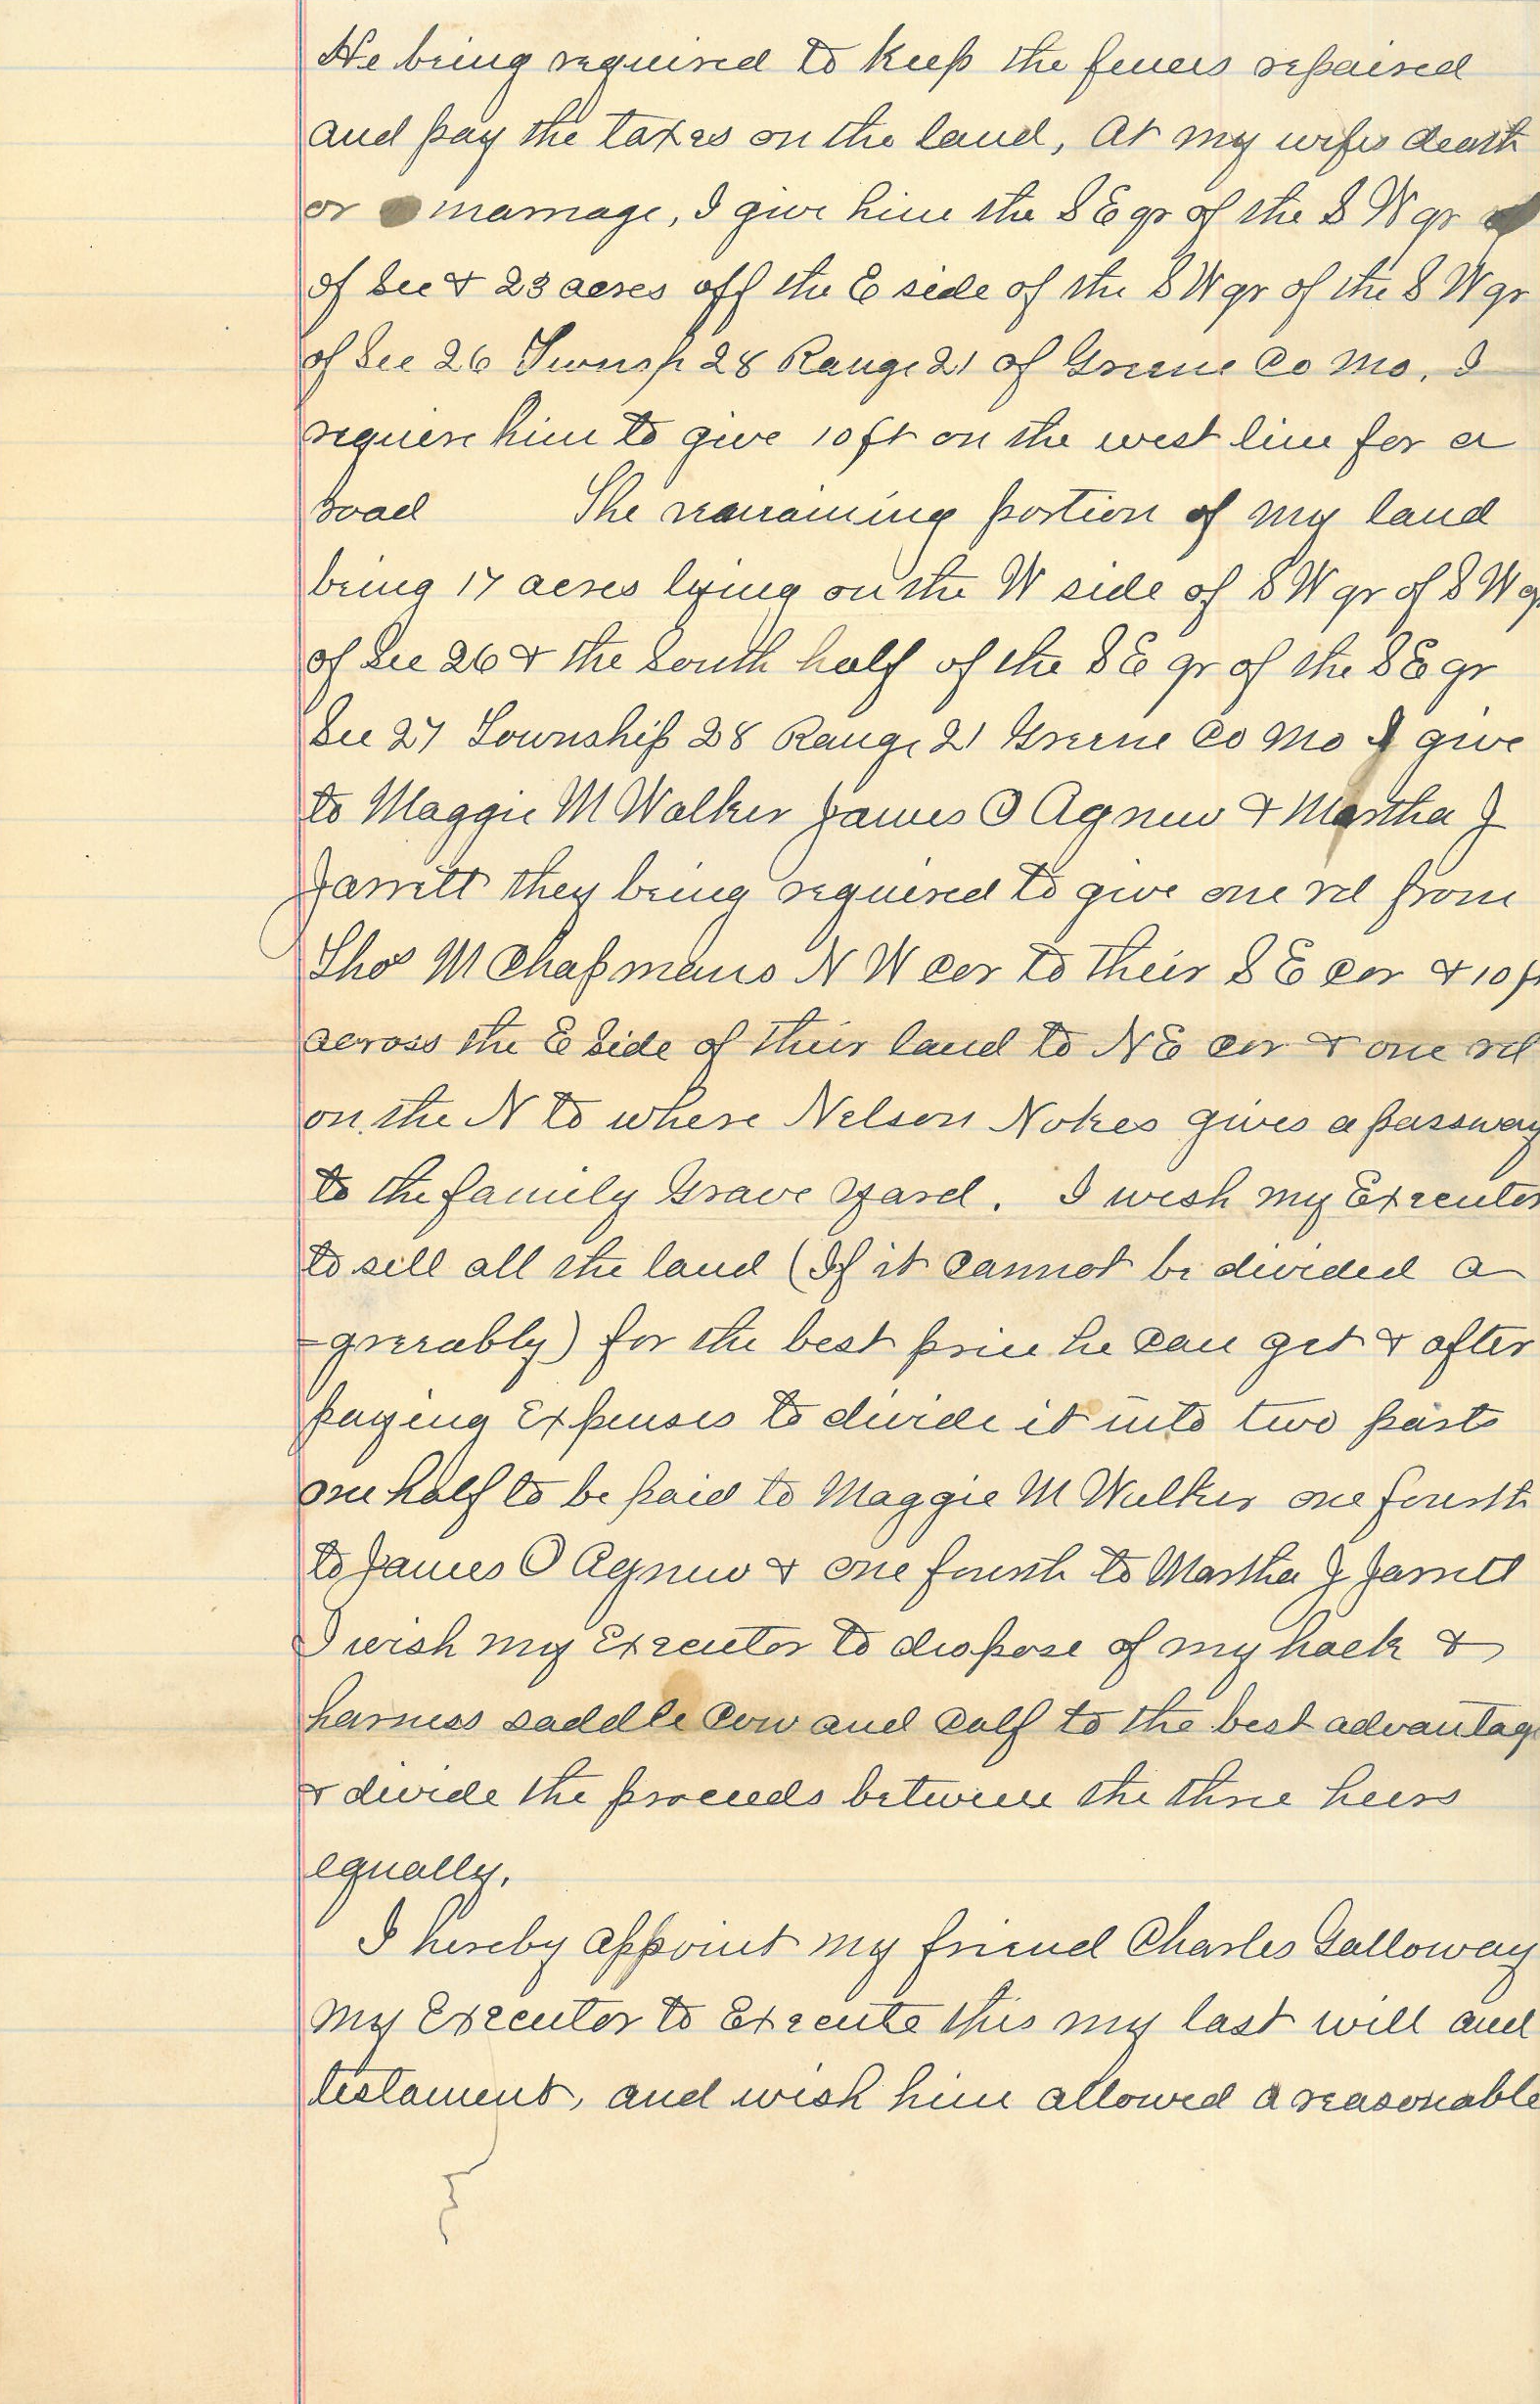 He being required to keep the fences repaired
and pay the taxes on the land, At my wifes death
or marriage, I give him the S E qr of the S W qr
of Sec & 23 acres off the E side of the S W qr of the S W qr
of Sec 26 Townsp 28 Range 21 of Greene Co Mo, I
require him to give 10 ft on the west line for a
road The remaining portion of my land
being 17 acres lying on the W side of S W qr of S W q
of Sec 26 & the South half of the S E qr of the S E qr
Sec 27 Township 28 Range 21 Greene Co Mo I give
to Maggie M Walker James O Agnew & Martha J
Jarrett they being required to give one rd from
Thos M Chapmans N W cor to their S E cor & 10 f
across the E Side of their land to N E cor & one rd
on the N to where Nelson Nokes gives a passway
to the family Grave yard. I wish my Executor
to sell all the land (If it cannot be divided a
=greeably) for the best price he can get & after
paying Expenses to divide it into two parts
one half to be paid to Maggie M Walker one fourth
to James O Agnew & one fourth to Martha J Jarrett
I wish my Executor to dispose of my hack &
harness saddle Cow and Calf to the best advantag
& divide the proceeds between the three heirs
equally,
I hereby appoint my friend Charles Galloway
my Executor to Execute this my last will and
testament, and wish him allowed a reasonable